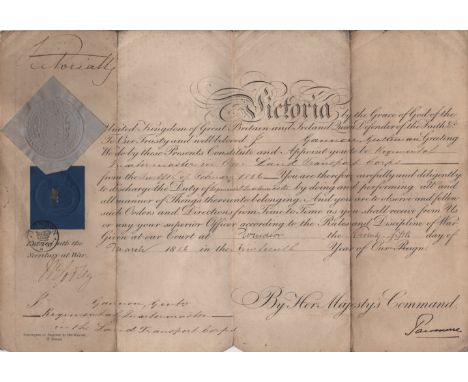 Victoria R
Victoria by the Grace of God of the
United Kingdom of Great Britain and Ireland Queen Defender of the Faith &c
To Our Trusty and welbeloved J Gannon Gentleman Greeting
We do by these Presents Constitute and Appoint you to be Regimental
Quartermaster in Our Land Transport Corps
from the Twelfth of February 1856 You are therefore carefully and diligently
to discharge the Duty of Regimental Quartermaster by doing and performing all and
all manner of Things thereunto belonging And you are to observe and follow
such Orders and Directions from Time to Time as you shall receive from Us
or any your superior Officer according to the Rules and Discipline of War
Given at our Court at Windsor the day of
March 1856 in the Nineteenth Year of Our Reign.
Entered with the
Secretary at War.
By Her Majesty's Command.
Panmure
J Gannon, Gent.
Regimental Quartermaster
in the Land Transport Corps